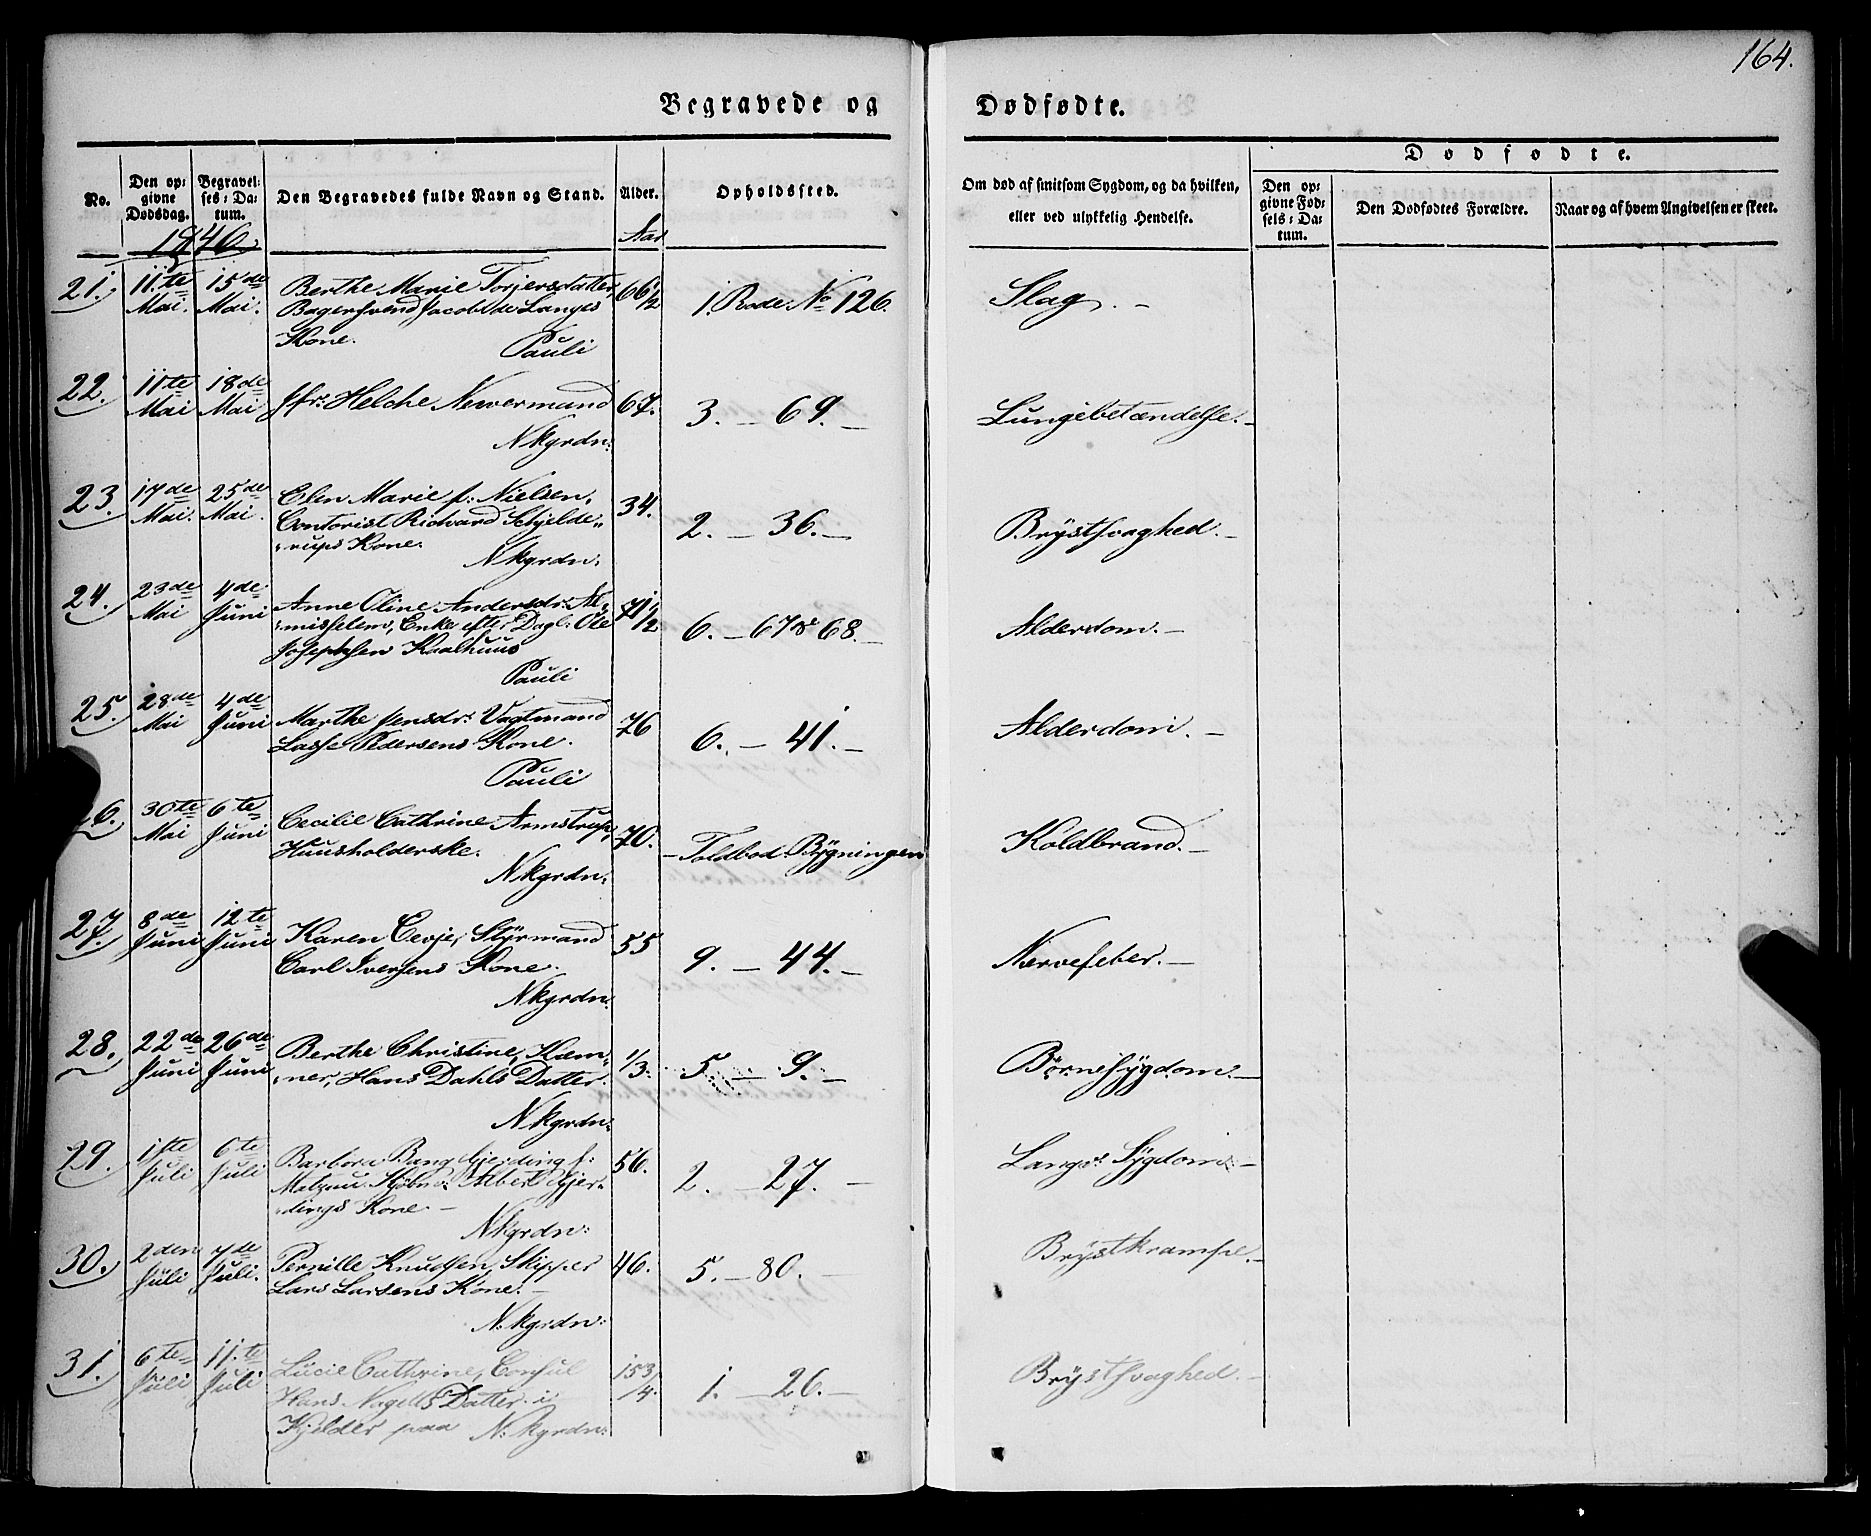 164.
Begravede og Dødfødte.
No. Den opgivne Dødsdag. Begravelses-Datum. Den Begravedes fulde Navn og Stand. Alder. Opholdssted. Om død af smitsom Sygdom, og da hvilken, eller ved ulykkelig Hendelse. Dødfødte. Den opgivne Fødsels-Datum. Den Dødfødtes Forældre. Naar og af hvem Angivelsen er skeet.
1846. Aar
21. 11te Mai. 15de Mai. Berthe Marie Torjersdatter, 66 1/2 1. Rode No 126. Slag. —
Bagersvend Jacob de Langes
Kone. Pauli
22. 11te Mai 18de Mai Jfr. Helche Newermand 67. 3. — 69. — Lungebetændelse. —
Nkgrdn:
23. 17de Mai. 25de Mai. Elen Marie f: Nielsen, 34. 2. — 36. — Brystsvaghed. —
Contorist Richard Schjelde„
„rups Kone. Nkgrdn:
24. 23de Mai 4de Juni Anne Oline Andersdr: Al„ 71 1/2 6. — 67 & 68. — Alderdom. —
„misselem, Enke efter Dagl: Ole
Josephsen Kaalhuus
Pauli
25. 28de Mai 4de Juni Marthe Jensdr: Vagtmand 76 6. — 41. — Alderdom. —
Lasse Pedersens Kone.
Pauli
26. 30te Mai 6te Juni Cecilie Cathrine Armstrup, 70. — Toldbod-Bygningen Koldbrand. —
Huusholderske.
Nkgrdn:
27. 8de Juni 12te Juni Karen Eerje, Styrmand 55 9. — 44. — Nervefeber. —
Carl Iversens Kone.
Nkgrdn:
28. 22de Juni 26de Juni Berthe Christine, Kæm„ 1/3. 5. — 9. — Børnesygdom. —
„ner, Hans Dahls Datter.
Nkgrdn:
29. 1ste Juli 6te Juli Barbora Bang Gjerding f: 56. 2. — 27. — Langv: Sygdom. —
Albert Gjer„
„dings Kone. —
Nkgrdn:
30. 2den Juli 7de Juli. Pernille Knudsen, Skipper 46. 5. — 80. — Brystkrampe. —
Lars Larsens Kone. —
N.kgrdn:
31. 6te Juli 11te Juli Lucie Cathrine, Consul 15 3/4. 1. — 26. — Brystsvaghed. —
Hans Nagells Datter. i
Kjelder paa N.kgrdn: